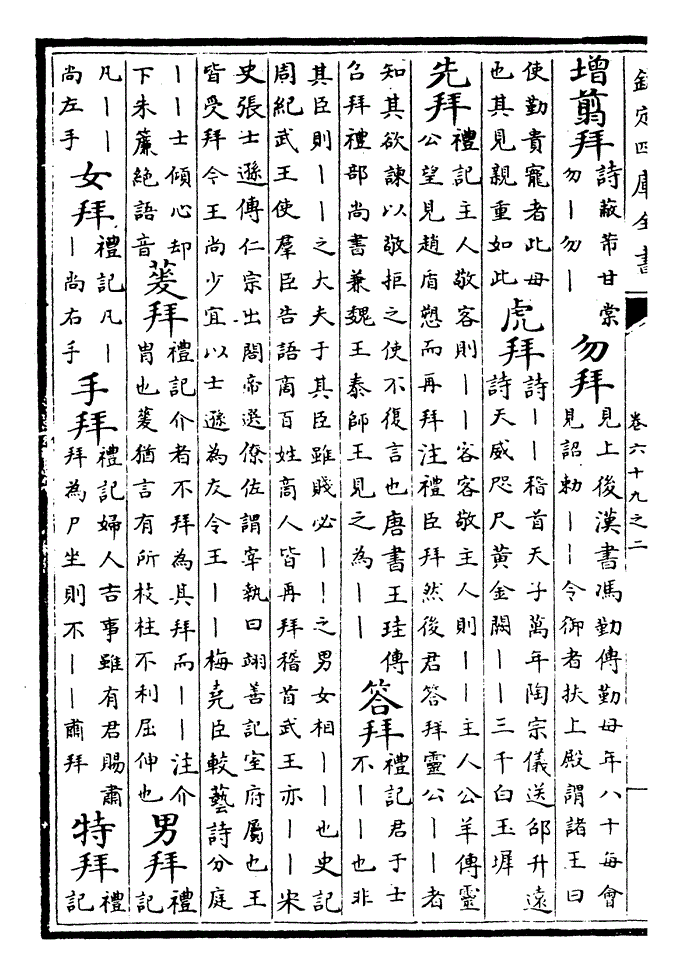 欽定四庫全書
卷六十九之二
增翦拜
詩蔽芾甘棠
勿丨勿丨
勿拜
見上後漢書馮勤傳勤母年八十每會
見詔勅丨丨令御者扶上殿謂諸王曰
使勤貴寵者此母
也其見親重如此
虎拜
詩丨丨稽首天子萬年陶宗儀送邵升遠
詩天威咫尺黃金闕丨丨三千白玉墀
先拜
禮記主人敬客則丨丨客客敬主人則丨丨主人公羊傳靈
公望見趙盾愬而再拜注禮臣拜然後君答拜靈公丨丨者
知其欲諫以敬拒之使不復言也唐書王珪傳
召拜禮部尚書兼魏王泰師王見之為丨丨
答拜
禮記君于士
不丨丨也非
其臣則丨丨之大夫于其臣雖賤必丨丨之男女相丨丨也史記
周紀武王使羣臣告語商百姓商人皆再拜稽首武王亦丨丨宋
史張士遜傳仁宗出閤帝選僚佐謂宰執曰翊善記室府屬也王
皆受拜今王尚少宜以士遜為友令王丨丨梅堯臣較藝詩分庭
丨丨士傾心却
下朱簾絕語音
蓌拜
禮記介者不拜為其拜而丨丨注介
胄也蓌猶言有所枝柱不利屈伸也
男拜
禮
記
凡丨丨
尚左手
女拜
禮記凡丨
丨尚右手
手拜
禮記婦人吉事雖有君賜肅
拜為尸坐則不丨丨肅拜
特拜
禮
記